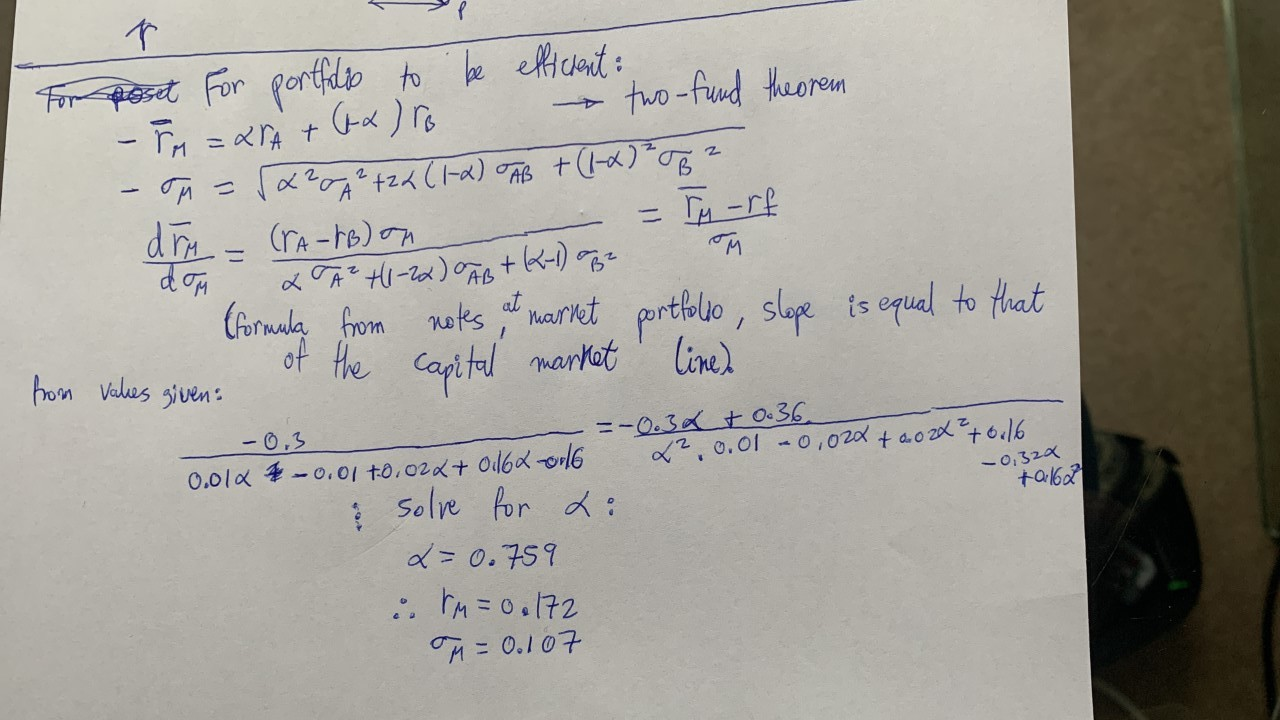 ↑ ρ
For portfolio to be efficient:
- r̄_M = αr_A + (1-α) r_B → two-fund theorem
- σ_M = √(α²σ_A² + 2α(1-α) σ_AB + (1-α)² σ_B²)
dr̄_M/dσ_M = (r_A - r_B) σ_M / (α σ_A² + (1-2α) σ_AB + (α-1) σ_B²) = (r̄_M - rf)/σ_M
(formula from notes, at market portfolio, slope is equal to that
of the capital market line)
from values given:
-0.3 / (0.01α - 0.01 + 0.02α + 0.16α - 0.16) = (-0.3α + 0.36) / (α² · 0.01 - 0.02α + 0.02α² + 0.16 - 0.32α + 0.16α²)
⋮ solve for α:
α = 0.759
∴ r_M = 0.172
σ_M = 0.107